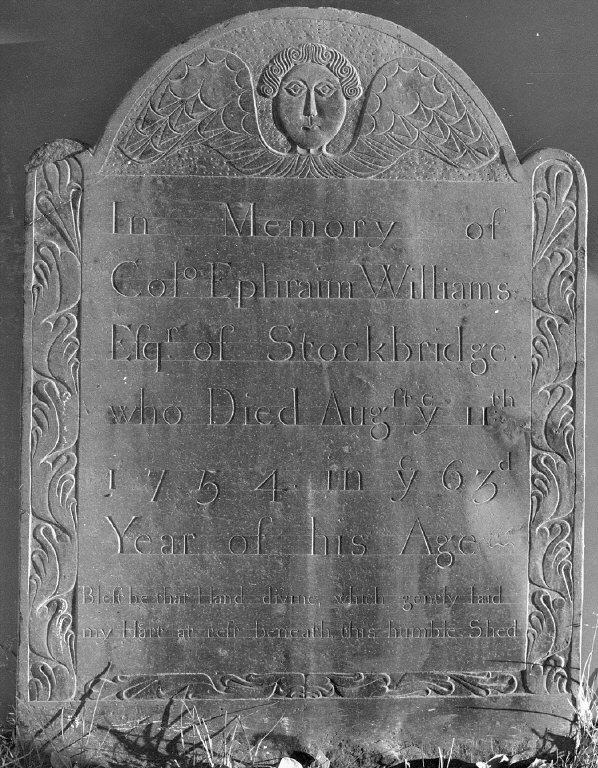 In Memory of
Colo Ephraim Williams
Eſqr of Stockbridge.
who Died Augſt ye 11th
1754. in ye 63d
Year of his Age
Bleſt be that Hand divine, which gently laid
my Hart at reſt beneath this humble Shed